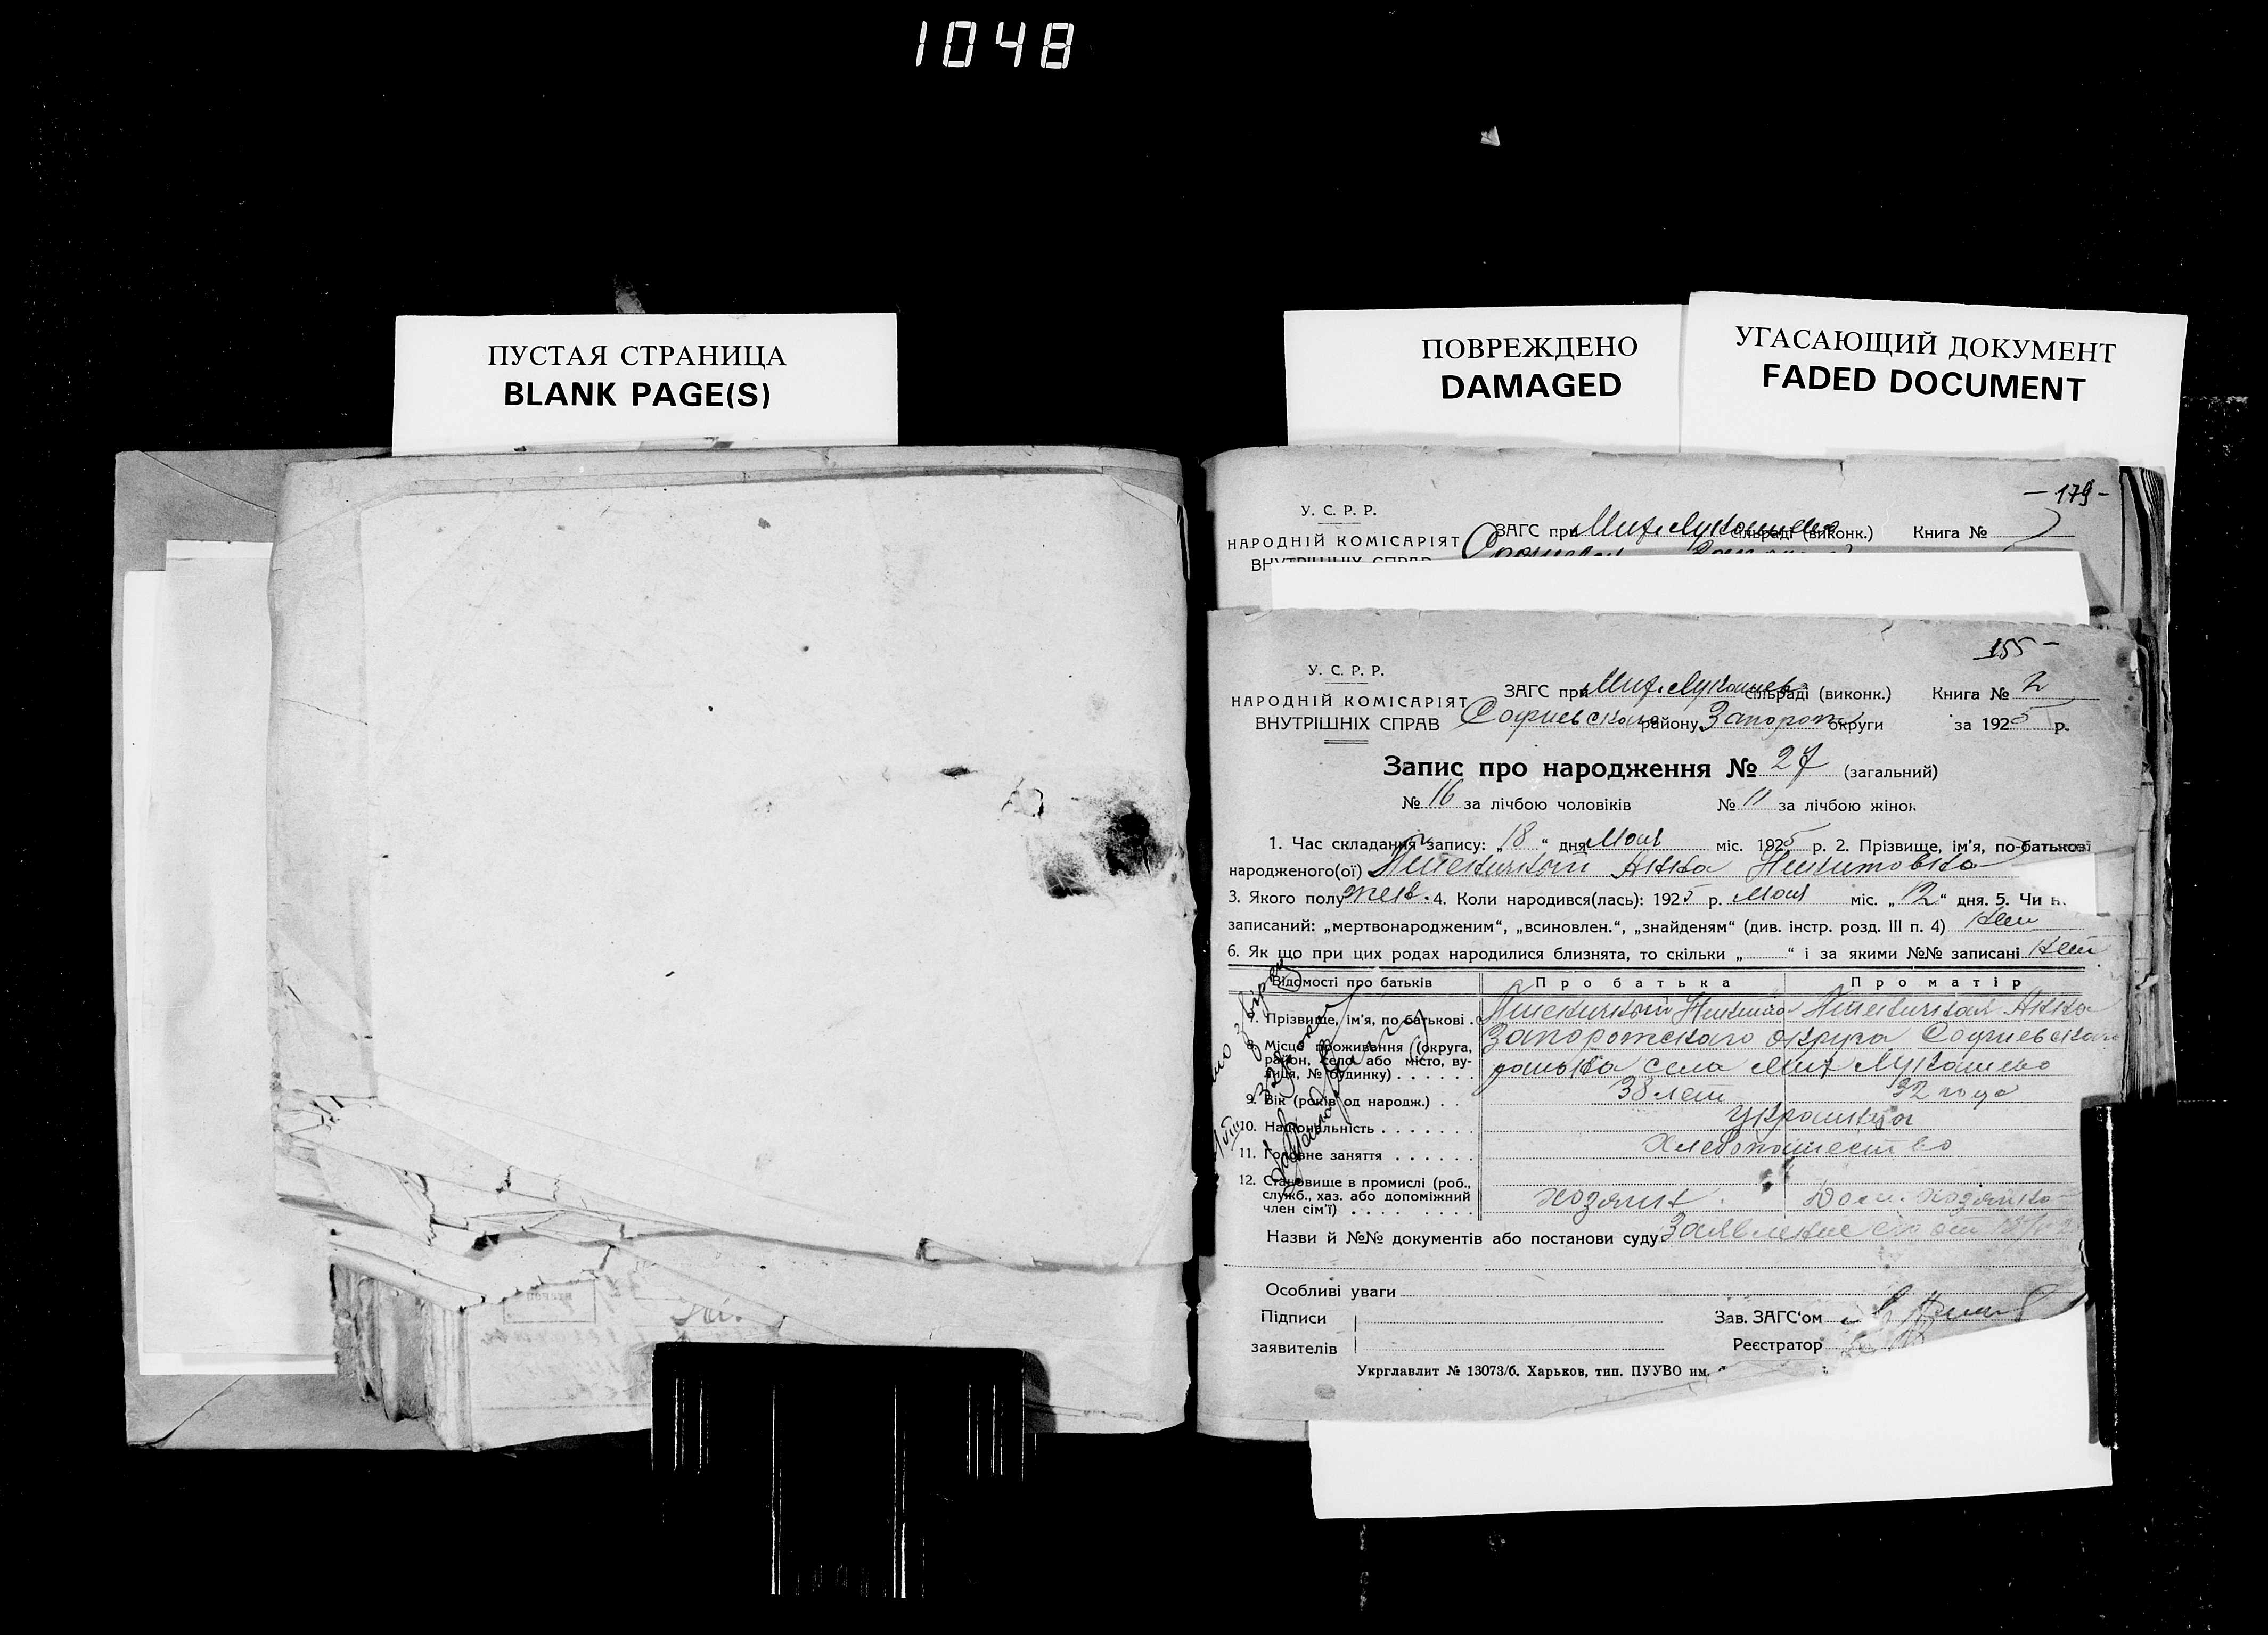 1048
ПУСТАЯ СТРАНИЦА
BLANK PAGE(S)
ПОВРЕЖДЕНО
DAMAGED
УГАСАЮЩИЙ ДОКУМЕНТ
FADED DOCUMENT
– 179 –
У. С. Р. Р.
НАРОДНІЙ КОМІСАРІЯТ
ЗАГС при сільраді (виконк.) Книга №
155 –
У. С. Р. Р.
НАРОДНІЙ КОМІСАРІЯТ
ВНУТРІШНІХ СПРАВ
ЗАГС при Мих. Лукашев сільраді (виконк.) Книга № 2
Софиевского району Запорож округи за 1925 р.
Запис про народження № 27 (загальний)
№ 16 за лічбою чоловіків № 11 за лічбою жінок
1. Час складання запису: „18“ дня Мая міс. 1925 р. 2. Прізвище, ім'я, по-батькові
народженого(ої) Анна Никитовна
3. Якого полу жен. 4. Коли народився(лась): 1925 р. Мая міс. „12“ дня. 5. Чи н
записаний: „мертвонародженим“, „всиновлен.“, „знайденям“ (див. інстр. розд. III п. 4) Нет
6. Як що при цих родах народилися близнята, то скільки „ “ і за якими №№ записані Нет
Відомості про батьків Про батька Про матір
7. Прізвище, ім'я, по батькові Никита Анна
8. Місце проживання (округа, район, село або місто, вулиця, № будинку) Запорожского округа Софиевского
района села Мих Лукашево
9. Вік (років од народж.) 38 лет 32 года
10. Національність украинцы
11. Головне заняття Хлебопашество
12. Становище в промислі (роб., служб., хаз. або допоміжний член сім'ї) хозяин Дом. хозяйка
Назви й №№ документів або постанови суду Заявление его от
Особливі уваги
Підписи
заявителів
Зав. ЗАГС'ом
Реєстратор
Укрглавлит № 13073/б. Харьков, тип. ПУУВО им.